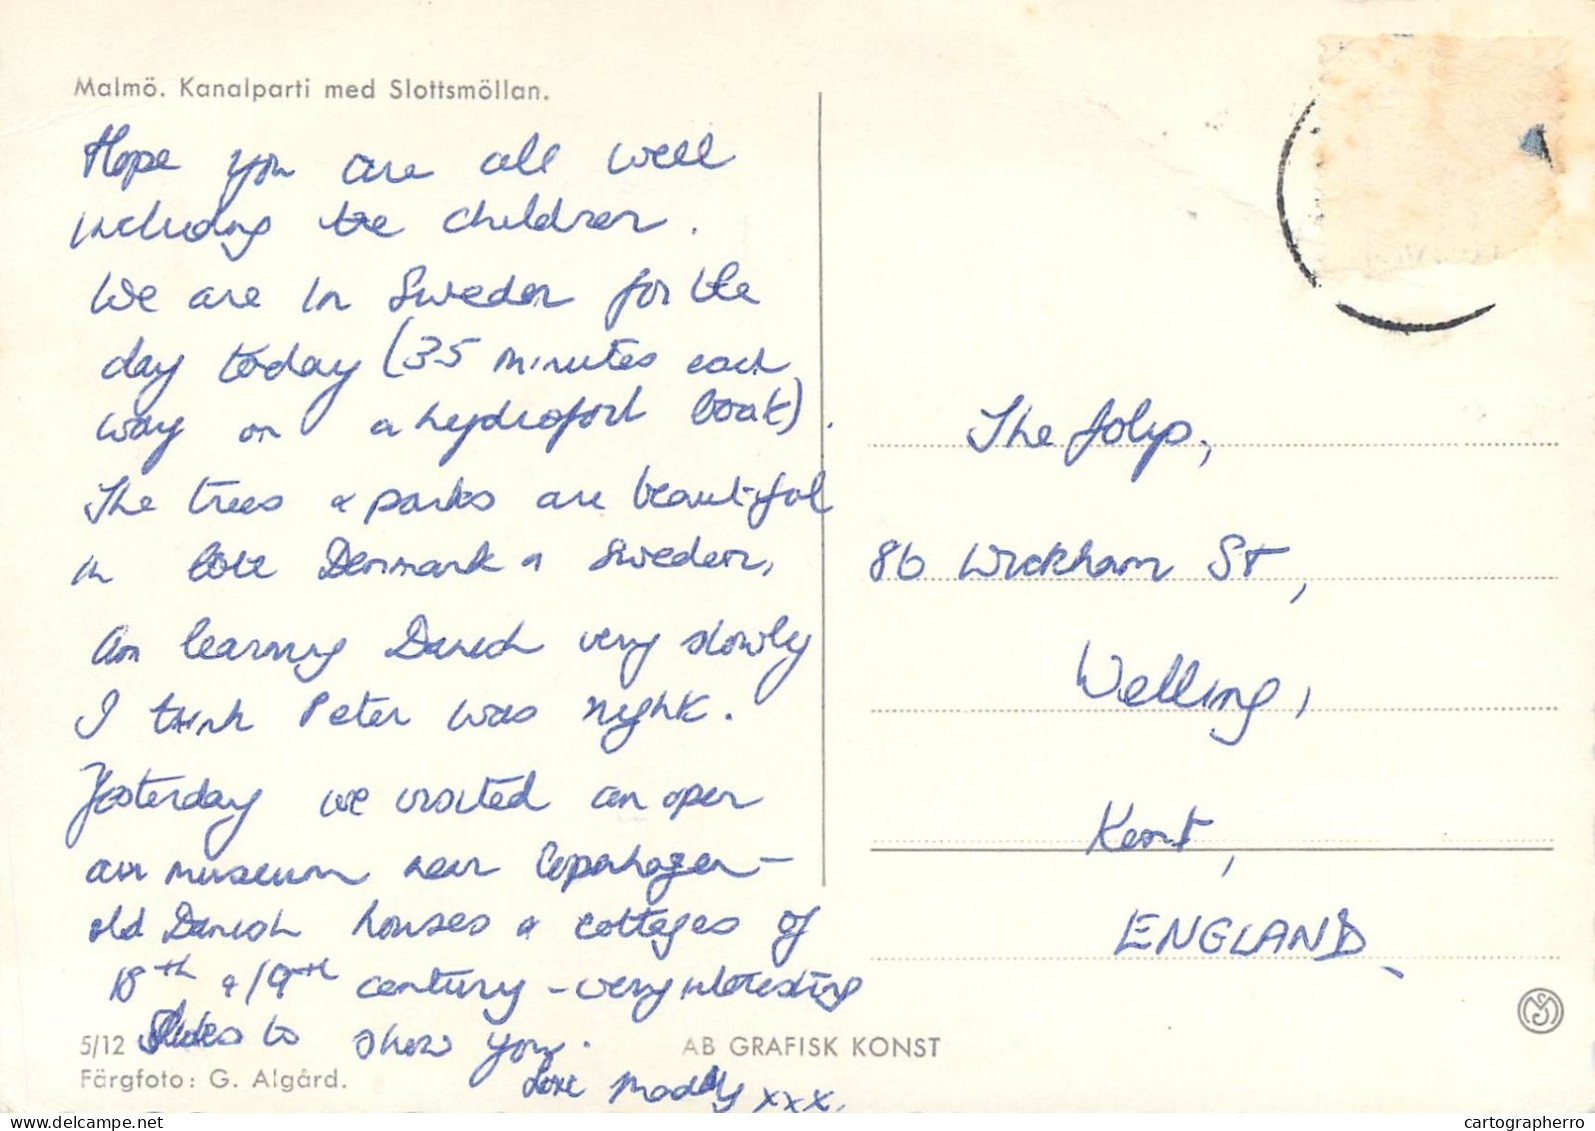 Malmö. Kanalparti med Slottsmöllan.
Hope you are all well
including the children.
We are in Sweden for the
day today (35 minutes each
way on a hydrofoil boat).
The trees & parks are beautiful
in both Denmark & Sweden,
Am learning Danish very slowly
I think Peter was right.
Yesterday we visited an open
air museum near Copenhagen –
old Danish houses & cottages of
18th & 19th century – very interesting
Slides to show you.
Love Maddy xxx.
5/12
Färgfoto: G. Algård.
AB GRAFISK KONST
The
86 Wickham St,
Welling,
Kent,
ENGLAND
delcampe.net
cartographerro